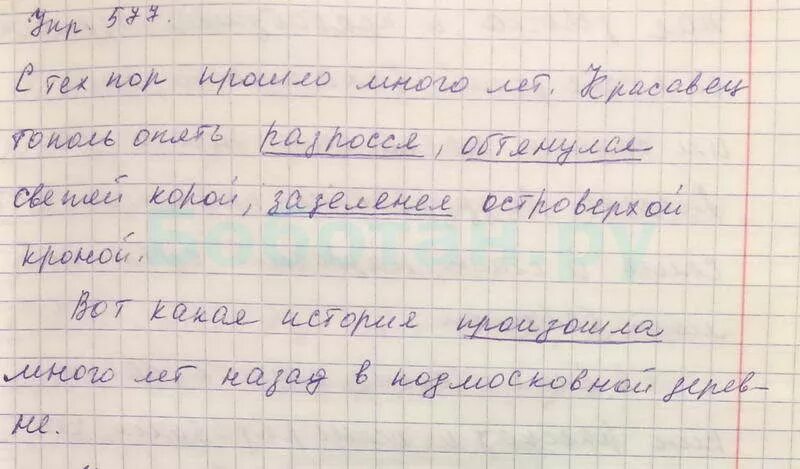 Упр. 577.
С тех пор прошло много лет. Красавец
тополь опять разросся, обтянулся
свежей корой, зазеленел островерхой
кроной.
Боботан.ру
Вот какая история произошла
много лет назад в подмосковной дерев-
не.